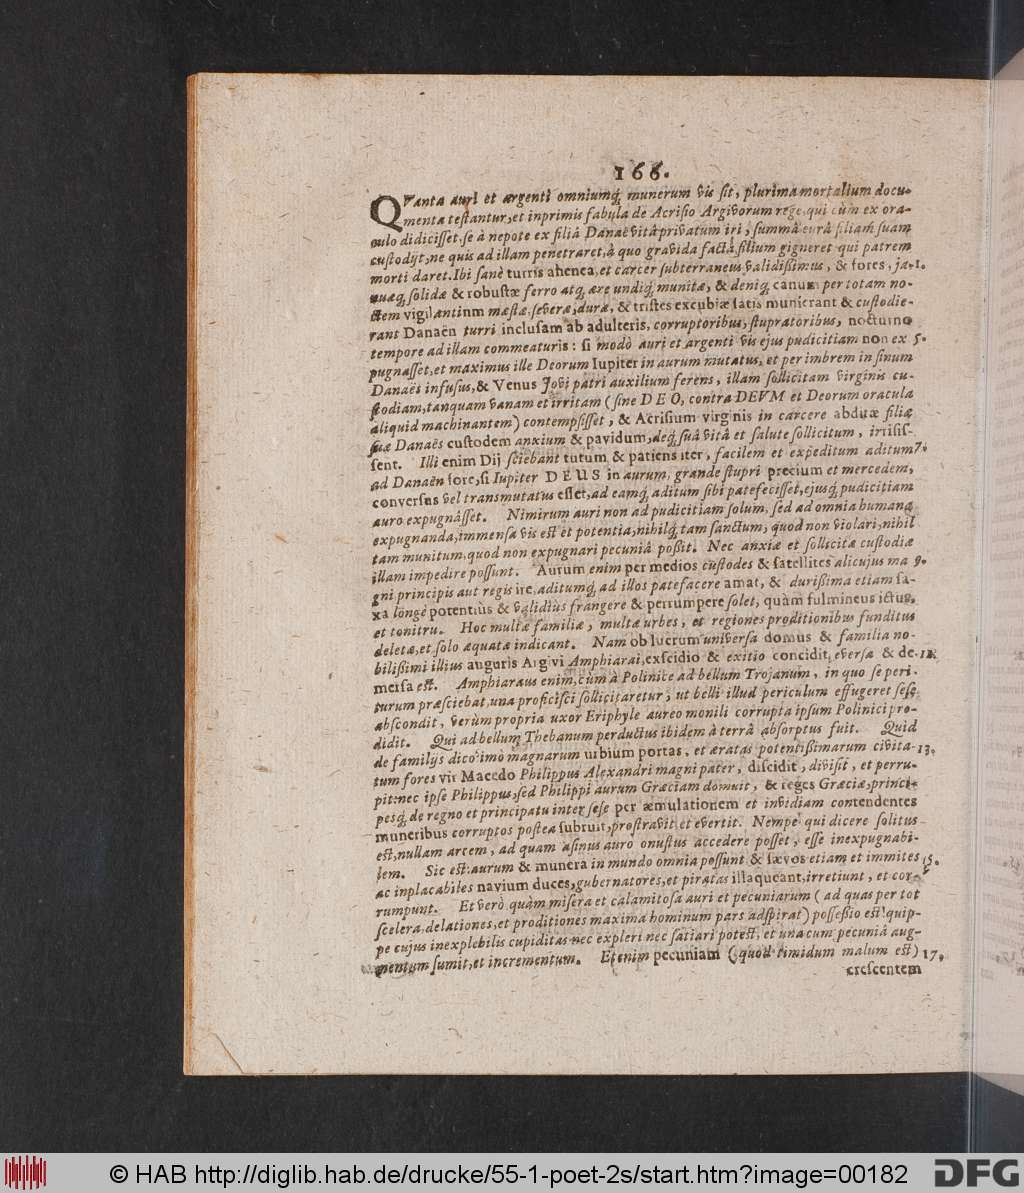 166.
QVanta auri et argenti omniumq́ munerum vis sit, plurima mortalium docu-
menta testantur, et inprimis fabula de Acrisio Argivorum rege, qui cùm ex ora-
culo didicisset, se à nepote ex filiâ Danaë vitâ privatum iri, summâ curâ filiam suam
custodijt, ne quis ad illam penetraret, à quo gravida facta, filium gigneret qui patrem
morti daret. Ibi sanè turris ahenea, et carcer subterraneus validißimus, & fores, ja- 1.
nuæq, solidæ & robustæ ferro atq, ære undiq, munitæ, & deniq, canum per totam no-
ctem vigilantium mæstæ, severæ, duræ, & tristes excubiæ satis munierant & custodie-
rant Danaën turri inclusam ab adulteris, corruptoribus, stupratoribus, nocturno
tempore ad illam commeaturis: si modò auri et argenti vis ejus pudicitiam non ex 5.
pugnasset, et maximus ille Deorum Iupiter in aurum mutatus, et per imbrem in sinum
Danaës infusus, & Venus Jovi patri auxilium ferens, illam sollicitam virginis cu-
stodiam, tanquam vanam et irritam (sine DEO, contra DEVM et Deorum oracula
aliquid machinantem) contempsisset, & Acrisium virginis in carcere abditæ filiæ
suæ Danaës custodem anxium & pavidum, deq́ suâ vitâ et salute sollicitum, irrisis-
sent. Illi enim Dij sciebant tutum & patiens iter, facilem et expeditum aditum 7.
ad Danaën fore, si Iupiter DEUS in aurum, grande stupri precium et mercedem,
conversus vel transmutatus esset, ad eamq́ aditum sibi patefecisset, ejusq́ pudicitiam
auro expugnâsset. Nimirum auri non ad pudicitiam solum, sed ad omnia humana
expugnanda, immensa vis est et potentia, nihilq́ tam sanctum, quod non violari, nihil
tam munitum, quod non expugnari pecuniâ poßit. Nec anxiæ et sollicitæ custodiæ
illam impedire possunt. Aurum enim per medios custodes & satellites alicujus ma 9.
gni principis aut regis ire, aditumq́ ad illos patefacere amat, & durißima etiam sa-
xa longè potentiùs & validiùs frangere & perrumpere solet, quàm fulmineus ictus,
et tonitru. Hoc multæ familiæ, multæ urbes, et regiones proditionibus funditus
deletæ, et solo æquatæ indicant. Nam ob lucrum universa domus & familia no-
bilißimi illius auguris Argivi Amphiarai, exscidio & exitio concidit, eversa & de- 11.
mersa est. Amphiaraus enim, cùm à Polinice ad bellum Trojanum, in quo se peri-
turum præsciebat, una proficisci sollicitaretur, ut belli illud periculum effugeret sese
abscondit, verùm propria uxor Eriphyle aureo monili corrupta ipsum Polinici pro-
didit. Qui ad bellum Thebanum perductus ibidem à terrâ absorptus fuit. Quid
de familijs dico? imò magnarum urbium portas, et æratas potentißimarum civita- 13.
tum fores vir Macedo Philippus Alexandri magni pater, discidit, divisit, et perru-
pit: nec ipse Philippus, sed Philippi aurum Græciam domuit, & reges Græciæ, princi-
pesq́, de regno et principatu inter sese per æmulationem et invidiam contendentes
muneribus corruptos postea subruit, prostravit et evertit. Nempe qui dicere solitus
est, nullam arcem, ad quam asinus auro onustus accedere posset, esse inexpugnabi-
lem. Sic est: aurum & munera in mundo omnia possunt & sævos etiam et immites 15.
ac inplacabiles navium duces, gubernatores, et piratas illaqueant, irretiunt, et cor-
rumpunt. Et verò quàm misera et calamitosa auri et pecuniarum (ad quas per tot
scelera, delationes, et proditiones maxima hominum pars adspirat) possessio est! quip-
pe cujus inexplebilis cupiditas nec expleri nec satiari potest, et una cum pecuniâ aug-
mentum sumit, et incrementum. Etenim pecuniam (quod timidum malum est) 17.
crescentem
© HAB http://diglib.hab.de/drucke/55-1-poet-2s/start.htm?image=00182
DFG